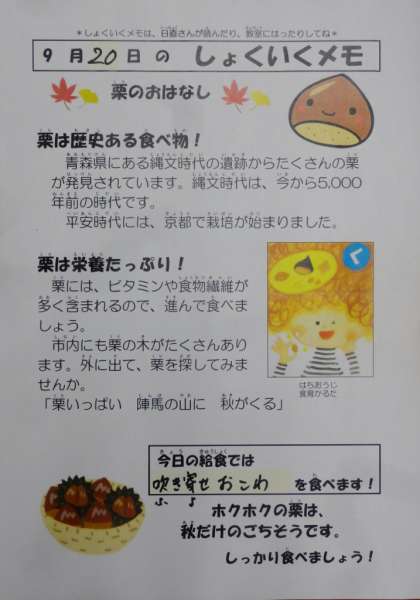 ＊しょくいくメモは、日直さんが読んだり、教室にはったりしてね＊
9月20日の しょくいくメモ
栗のおはなし
栗は歴史ある食べ物！
青森県にある縄文時代の遺跡からたくさんの栗
が発見されています。縄文時代は、今から5,000
年前の時代です。
平安時代には、京都で栽培が始まりました。
栗は栄養たっぷり！
栗には、ビタミンや食物繊維が
多く含まれるので、進んで食べま
しょう。
市内にも栗の木がたくさんあり
ます。外に出て、栗を探してみま
せんか。
「栗いっぱい 陣馬の山に 秋がくる」
く
はちおうじ
食育かるた
今日の給食では
吹き寄せおこわ を食べます！
ふ よ
ホクホクの栗は、
秋だけのごちそうです。
しっかり食べましょう！